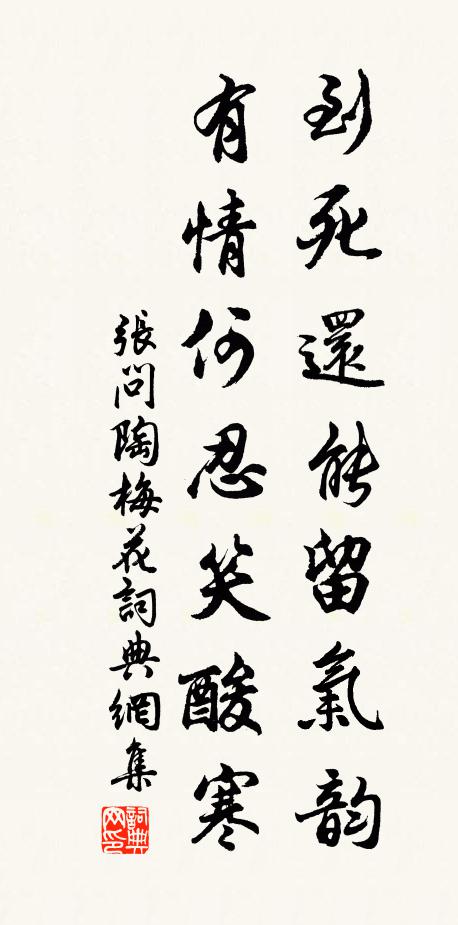 到死還能留氣韵
有情何忍笑酸寒
張問陶梅花詞典網集
詞典網印